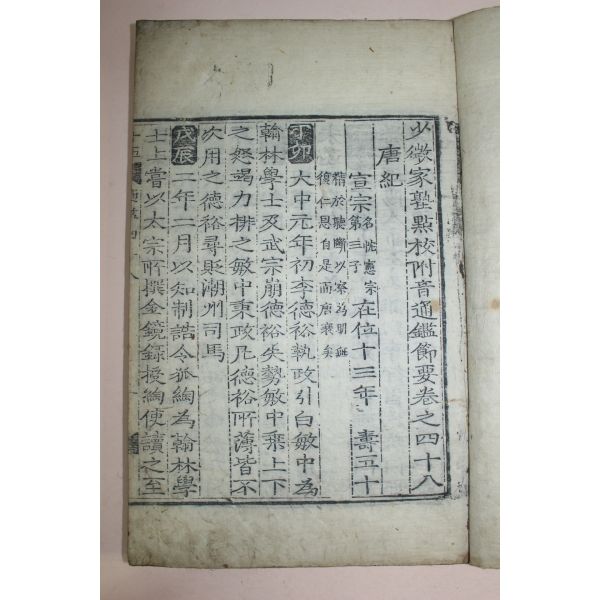 少微家塾點校附音通鑑節要卷之四十八
唐紀
宣宗名忱憲宗第三子在位十三年 壽五十
精於聽斷以察爲明無復仁恩自是而唐衰矣
丁卯 大中元年初李德裕執政引白敏中為
翰林學士及武宗崩德裕失勢敏中乘上下
之怒竭力排之敏中秉政凡德裕所薄皆不
次用之德裕尋貶潮州司馬
戊辰 二年二月以知制誥令狐綯為翰林學
士上嘗以太宗所撰金鏡錄授綯使讀之至